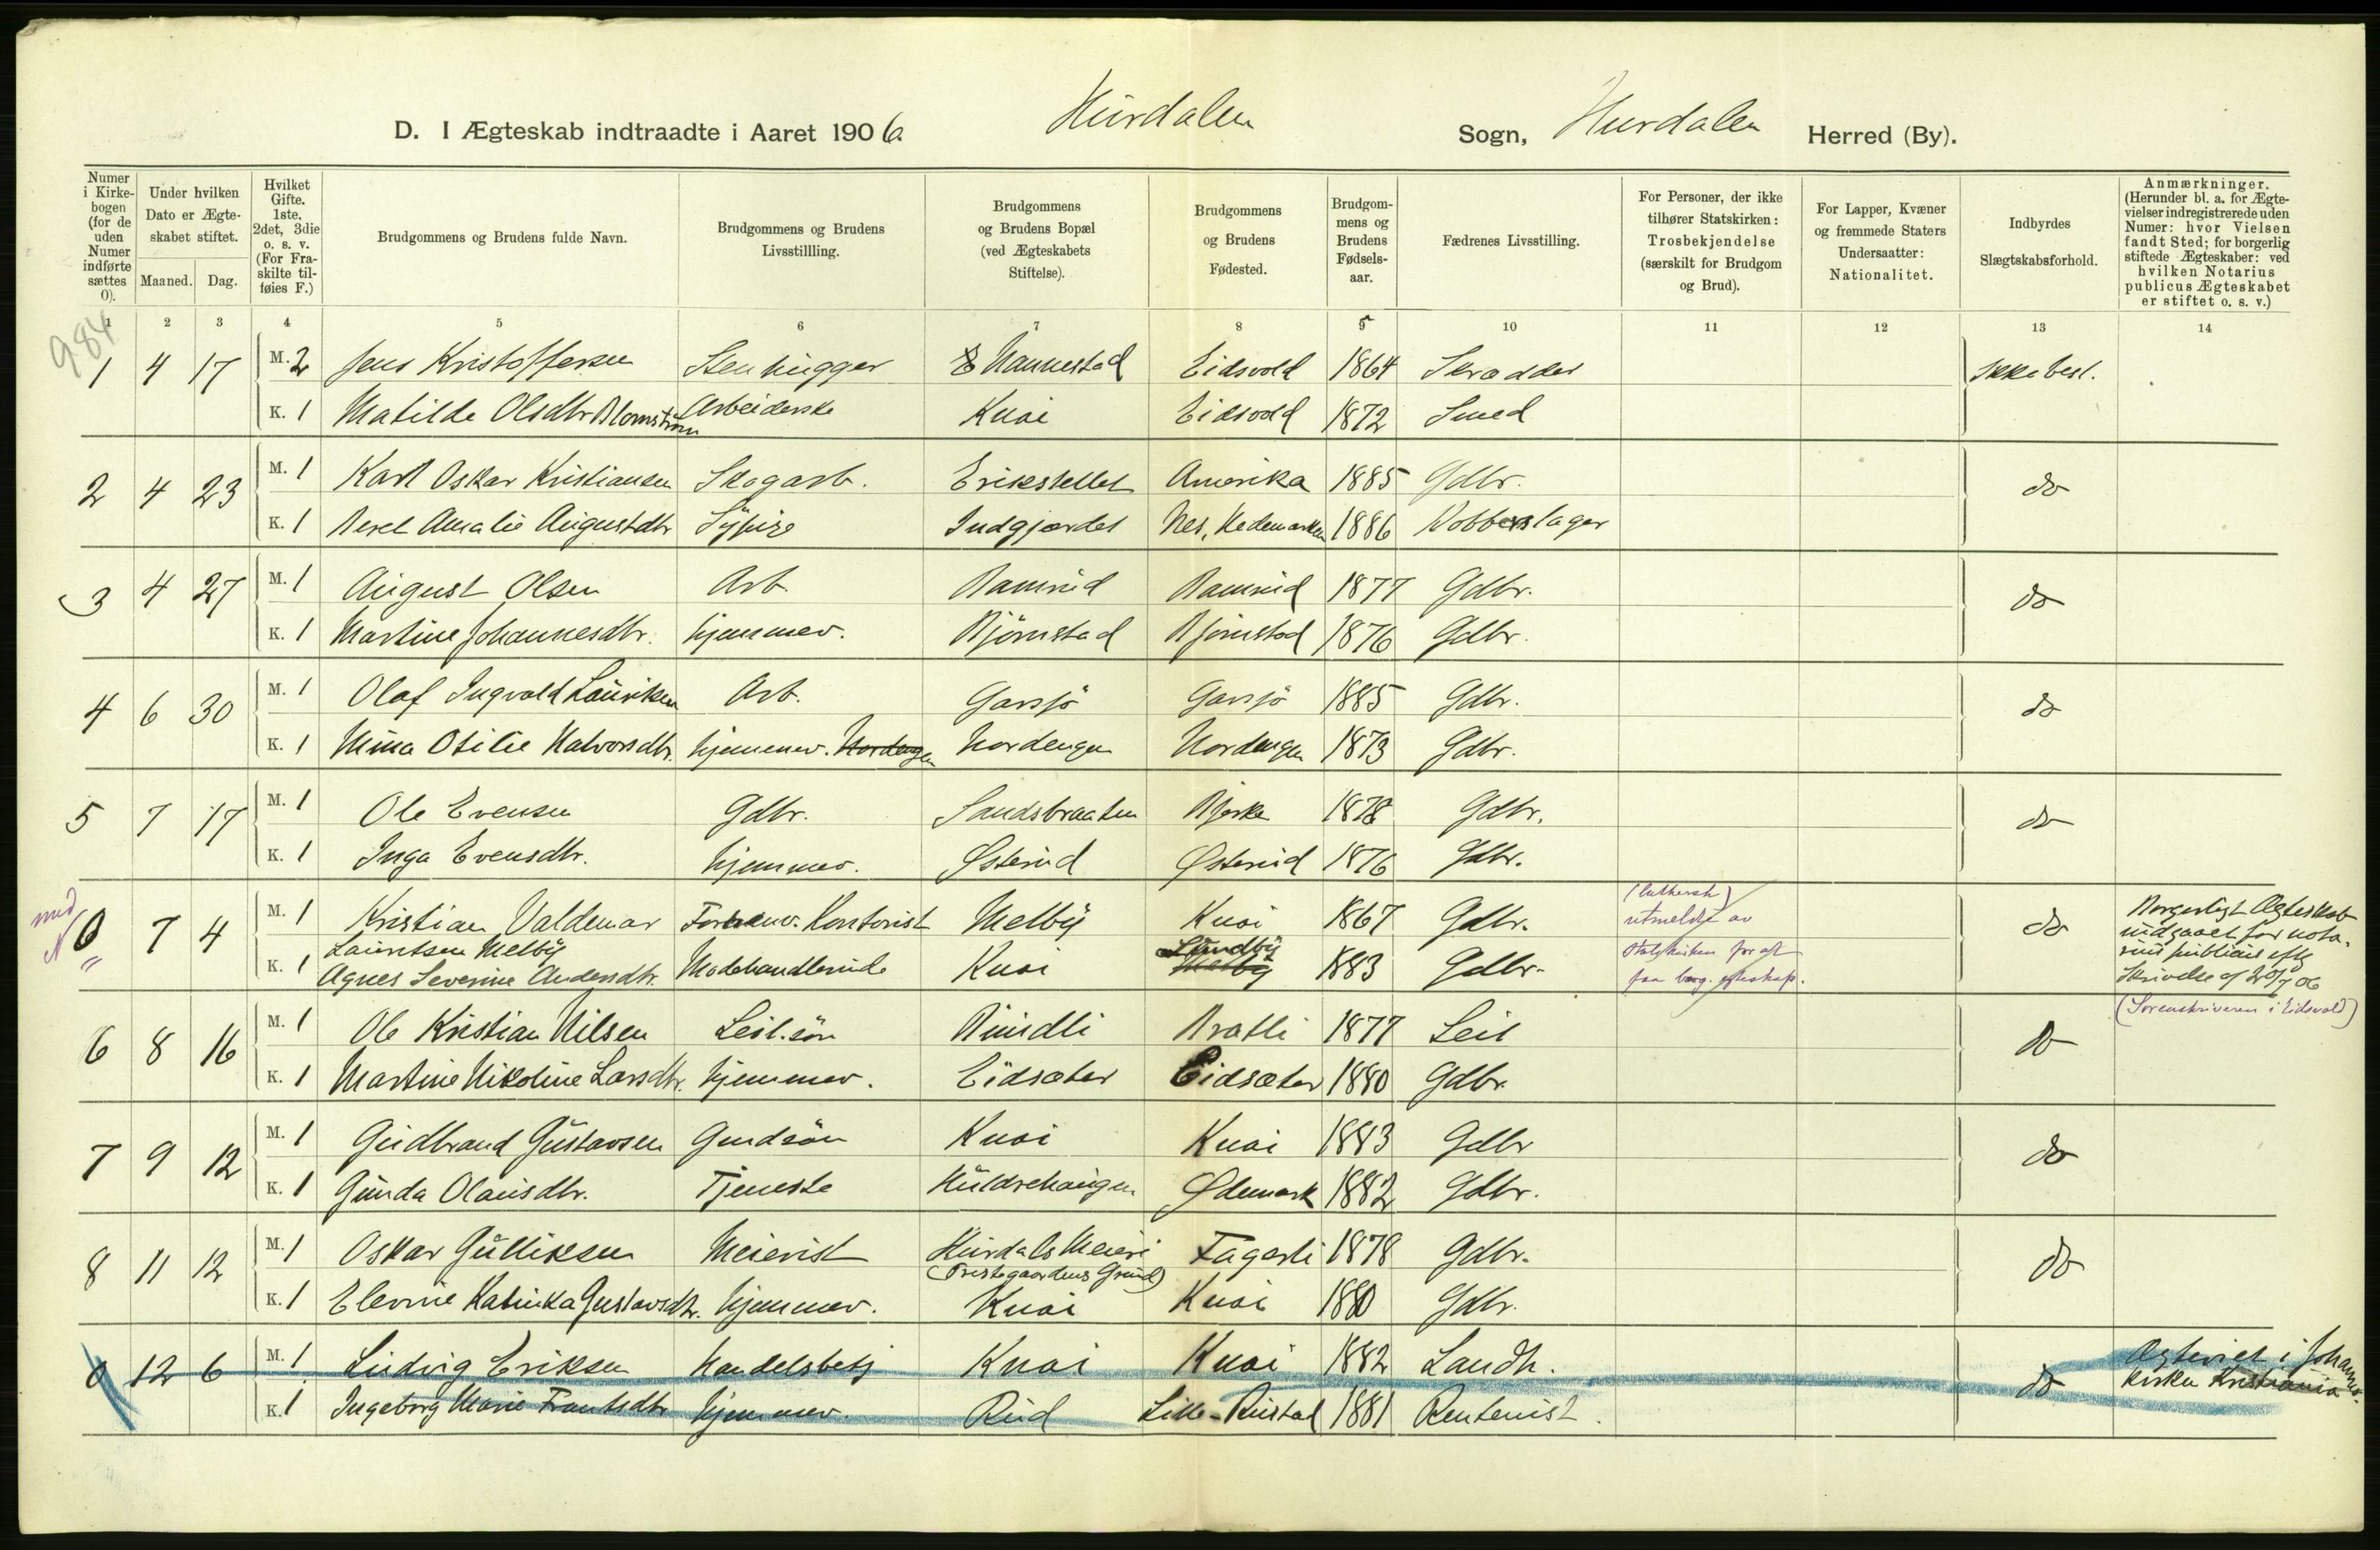 Hurdalen Hurdalen
D. I Ægteskab indtraadte i Aaret 1906. Sogn, Herred (By).
Numer i Kirkebogen (for de uden Numer indførte sættes 0).
Under hvilken Dato er Ægteskabet stiftet. Maaned. Dag.
Hvilket Gifte. 1ste, 2det, 3die o. s. v. (For Fraskilte tilføies F.)
Brudgommens og Brudens fulde Navn.
Brudgommens og Brudens Livsstillling.
Brudgommens og Brudens Bopæl (ved Ægteskabets Stiftelse).
Brudgommens og Brudens Fødested.
Brudgommens og Brudens Fødselsaar.
Fædrenes Livsstilling.
For Personer, der ikke tilhører Statskirken: Trosbekjendelse (særskilt for Brudgom og Brud).
For Lapper, Kvæner og fremmede Staters Undersaatter: Nationalitet.
Indbyrdes Slægtskabsforhold.
Anmærkninger. (Herunder bl. a. for Ægtevielser indregistrerede uden Numer: hvor Vielsen fandt Sted; for borgerlig stiftede Ægteskaber: ved hvilken Notarius publicus Ægteskabet er stiftet o. s. v.)
1 2 3 4 5 6 7 8 9 10 11 12 13 14
984
1 4 17 M. 2 Jens Kristoffersen Stenhugger Nannestad Eidsvold 1864 Skrædder Ikke besl.
K. 1 Matilde Olsdtr Blomstrøm Arbeiderske Knai Eidsvold 1872 Smed
2 4 23 M. 1 Karl Oskar Kristiansen Skogarb. Erikstellet Amerika 1885 Gdbr. do
K. 1 Beret Amalie Augustdtr Sypige Indgjærdet Nes, Hedemarken 1886 Kobberslager
3 4 27 M. 1 August Olsen Arb. Ramrud Ramrud 1877 Gdbr. do
K. 1 Martine Johannesdtr. hjemmev. Bjørnstad Bjørnstad 1876 Gdbr.
4 6 30 M. 1 Olaf Ingvald Lauritsen Arb. Garsjø Garsjø 1885 Gdbr. do
K. 1 Mina Otilie Halvorsdtr. hjemmev. Nordengen Nordengen Nordengen 1873 Gdbr.
5 7 17 M. 1 Ole Evensen Gdbr. Sandsbraaten Bjerke 1878 Gdbr. do
K. 1 Inga Evensdtr. hjemmev. Østerud Østerud 1876 Gdbr.
0 7 4 M. 1 Kristian Valdemar Kontorist Melby Knai 1867 Gdbr. (luthersk) utmeldt av do Borgerligt Ægteskab
Lauritsen Melby Lundby indgaaet for nota-
K. 1 Agnes Severine Andersdtr. Modehandlerinde Knai Melby 1883 Gdbr. Statskirken for at rius publicus iflg.
faa borg. egteskap. Skrivelse af 20/7 06
(Sorenskriveren i Eidsvold)
6 8 16 M. 1 Ole Kristian Nilsen Leil.søn Rundli Bratli 1877 Leil do
K. 1 Martine Nikoline Larsdtr. hjemmev. Eidsæter Eidsæter 1880 Gdbr.
7 9 12 M. 1 Gudbrand Gustavsen Gmdsøn Knai Knai 1883 Gdbr do
K. 1 Gunda Olausdtr. Tjeneste Huldrehaugen Ødemark 1882 Gdbr.
8 11 12 M. 1 Oskar Gulliksen Meierist Hurdals Meieri Fagerli 1878 Gdbr. do
(Prestegaardens Grund)
K. 1 Elevine Katinka Gustavsdtr. hjemmev. Knai Knai 1880 Gdbr.
0 12 6 M. 1 Ludvig Eriksen Handelsbetj Knai Knai 1882 Landh. do Ægteviet i Johannes-
kirken Kristiania.
K. 1 Ingeborg Marie Frantsdtr hjemmev. Rud Lille-Rustad 1881 Rentenist.